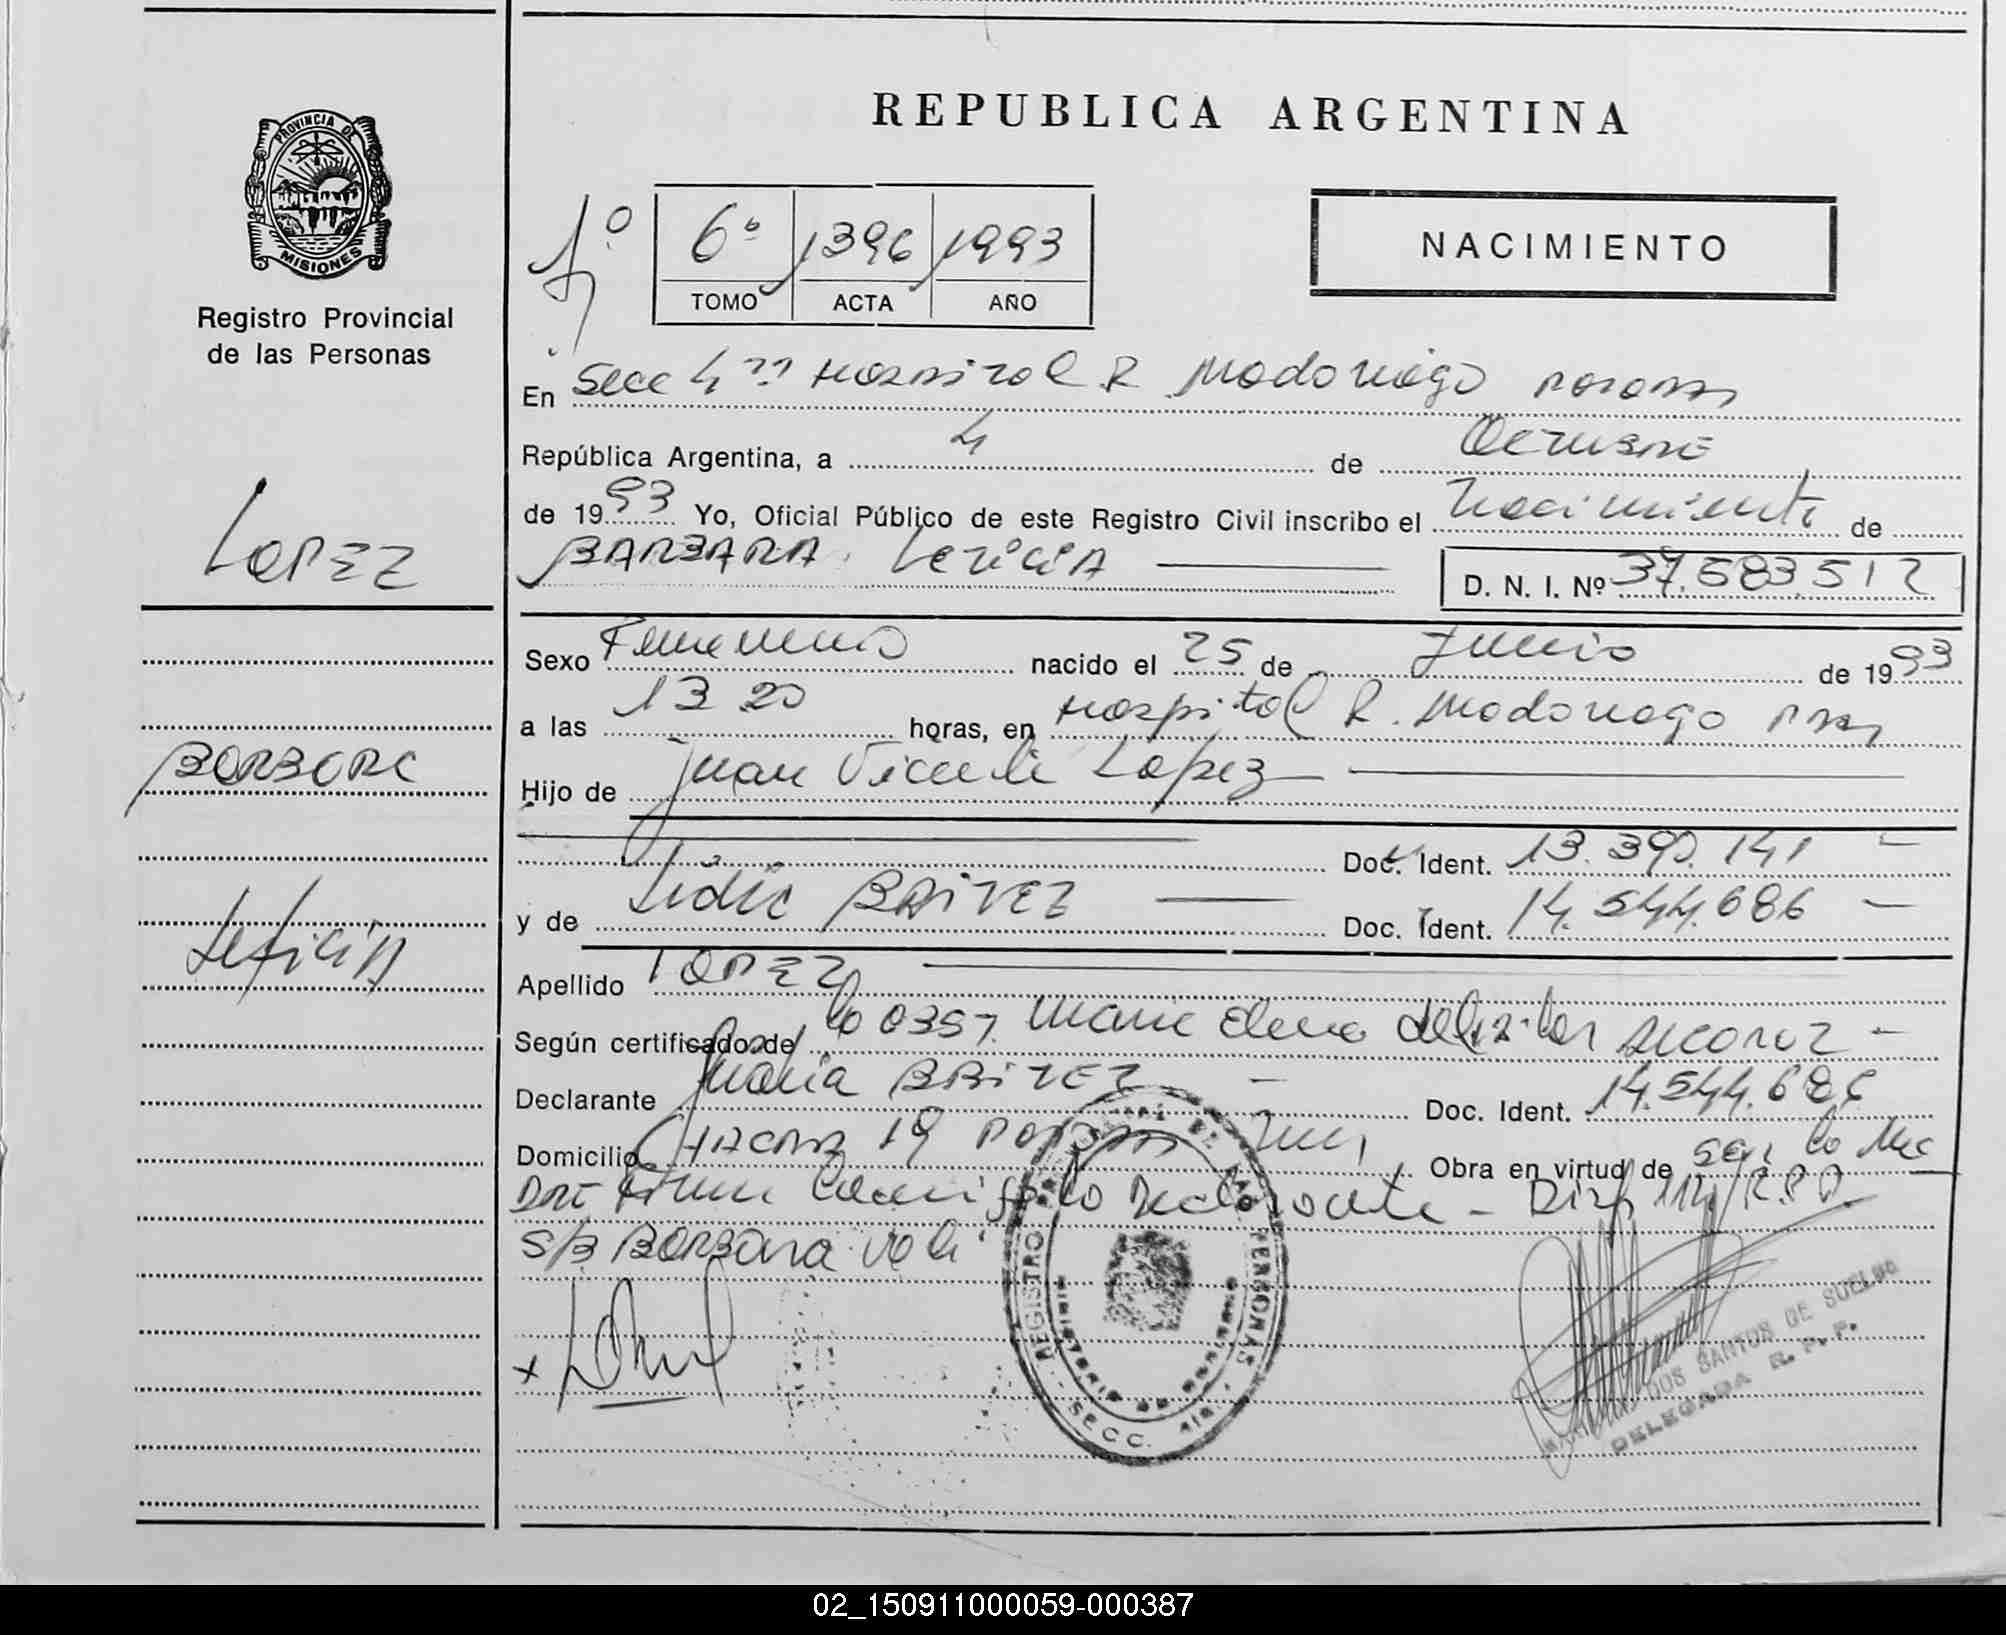 REPUBLICA ARGENTINA
PROVINCIA DE MISIONES
Registro Provincial
de las Personas
6º 1396 1993
TOMO ACTA AÑO
NACIMIENTO
En Secc 4ta Hospital R. Madariaga Posadas
República Argentina, a 4 de Octubre
de 1993 Yo, Oficial Público de este Registro Civil inscribo el Nacimiento de
BARBARA Leticia D. N. I. Nº 37.583.512
LOPEZ
Sexo Femenino nacido el 25 de Junio de 1993
a las 13 20 horas, en Hospital R. Madariaga Pdas
BARBARA
Hijo de Juan Vicente Lopez
Doc. Ident. 13.390.141
y de Lidia BRITEZ Doc. Ident. 14.544.686
Leticia
Apellido LOPEZ
Según certificado de 0357 Maria Elena
Declarante Lidia BRITEZ Doc. Ident. 14.544.686
Domicilio Chacra 19 Posadas Mnes Obra en virtud de ser la Ma
dre Firma la Declarante - Disp
S/B Barbara Vale
REGISTRO PROVINCIAL DE LAS PERSONAS
MINISTERIO DE GOBIERNO
SECC. 4ta.
DOS SANTOS DE SUELDO
DELEGADA R. P. P.
02_150911000059-000387